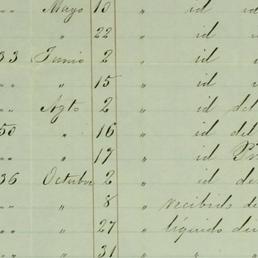 " " Mayo 13 " id id
" " " 22 " id
33 Junio 2 " id
" " " 15 " id
" " Agto 2 " id del
50 " 16 " id del
" " " 17 " id
36 Octubre 2 " id de
" " " 8 " recibido de
" " " 27 " líquido de
" " " 31 " " "